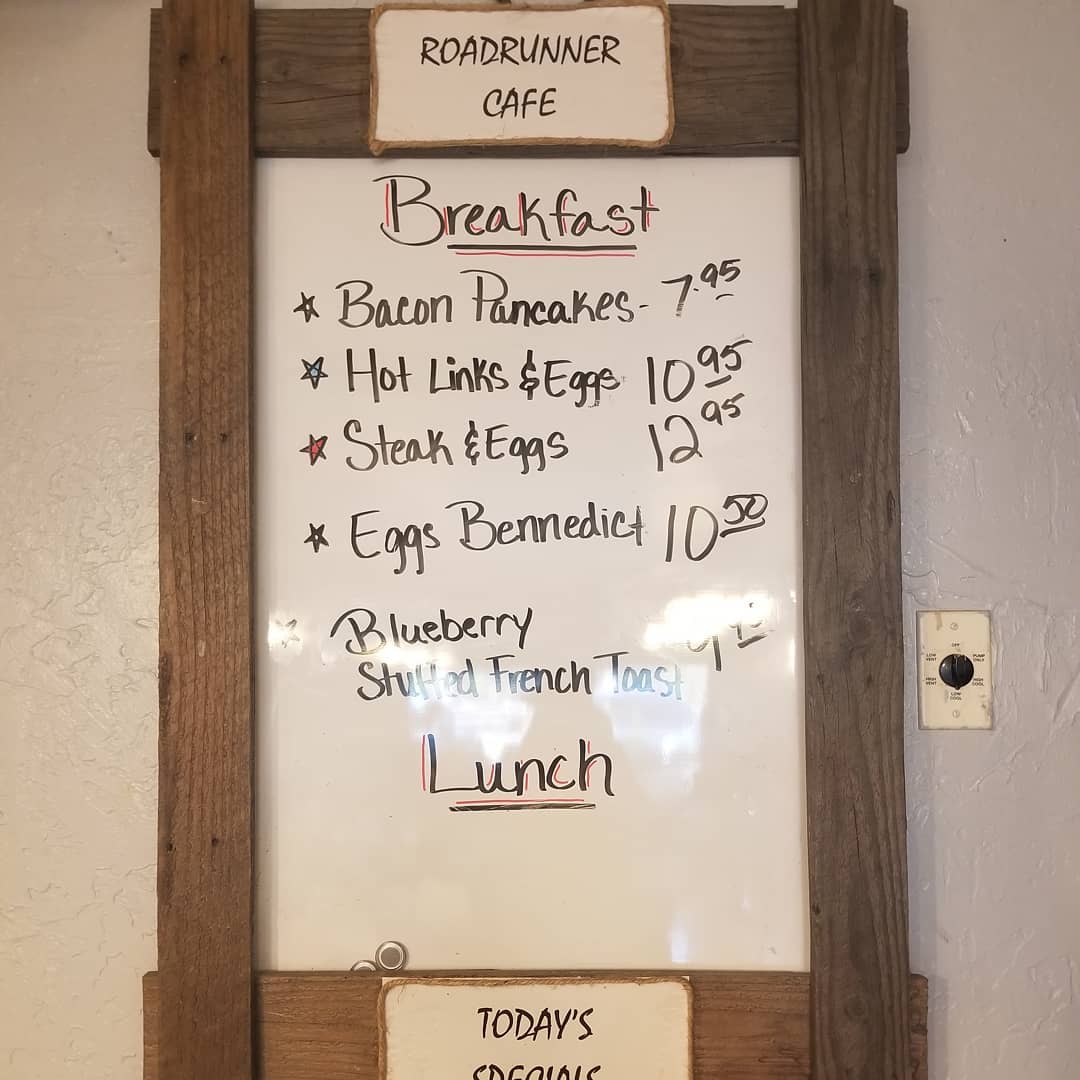 ROADRUNNER
CAFE
Breakfast
Bacon Pancakes- 7.95
Hot Links & Eggs 10 95
Steak & Eggs 12 95
Eggs Bennedict 10 50
Blueberry
Stuffed French Toast
Lunch
OFF
LOW VENT
PUMP ONLY
HIGH VENT
HIGH COOL
LOW COOL
TODAY'S
SPECIALS